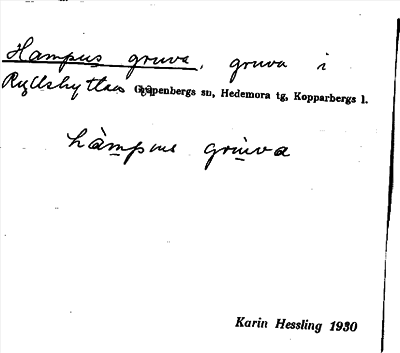 Hampus gruva, gruva i
Ryllshyttan Garpenbergs sn, Hedemora tg, Kopparbergs l.
hàmpus grùva
Karin Hessling 1930